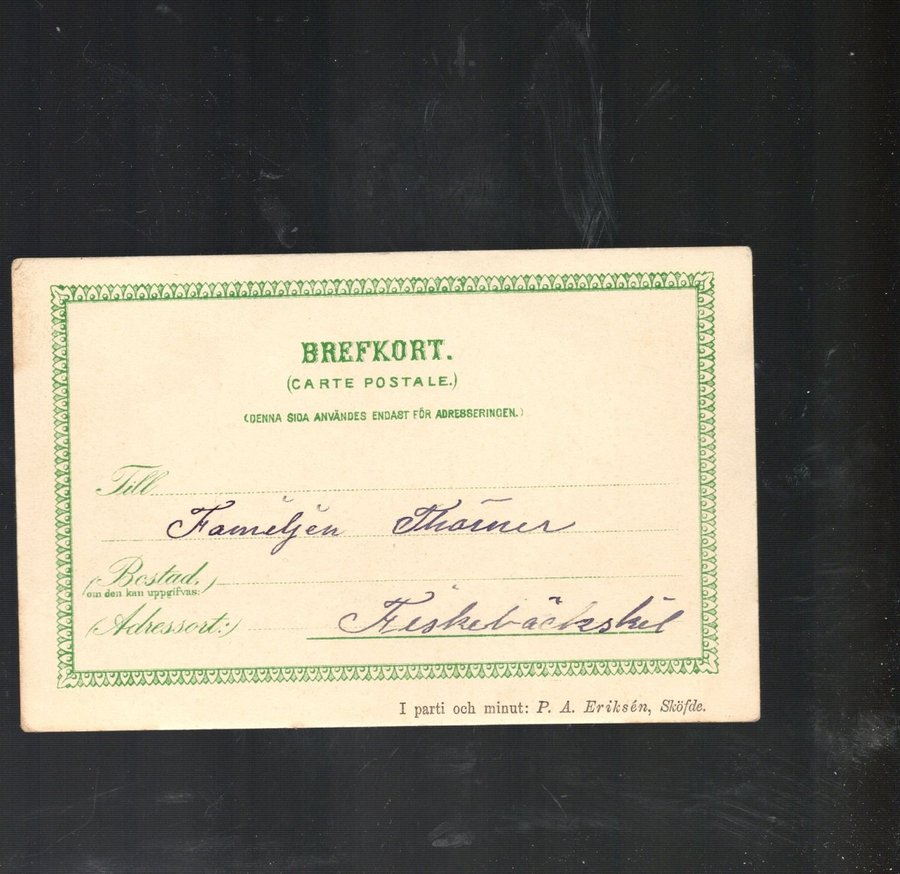 BREFKORT.
(CARTE POSTALE.)
(DENNA SIDA ANVÄNDES ENDAST FÖR ADRESSERINGEN.)
Till
Familjen
(Bostad,)
om den kan uppgifvas:
(Adressort:) Fiskebäckskil
I parti och minut: P. A. Eriksén, Sköfde.